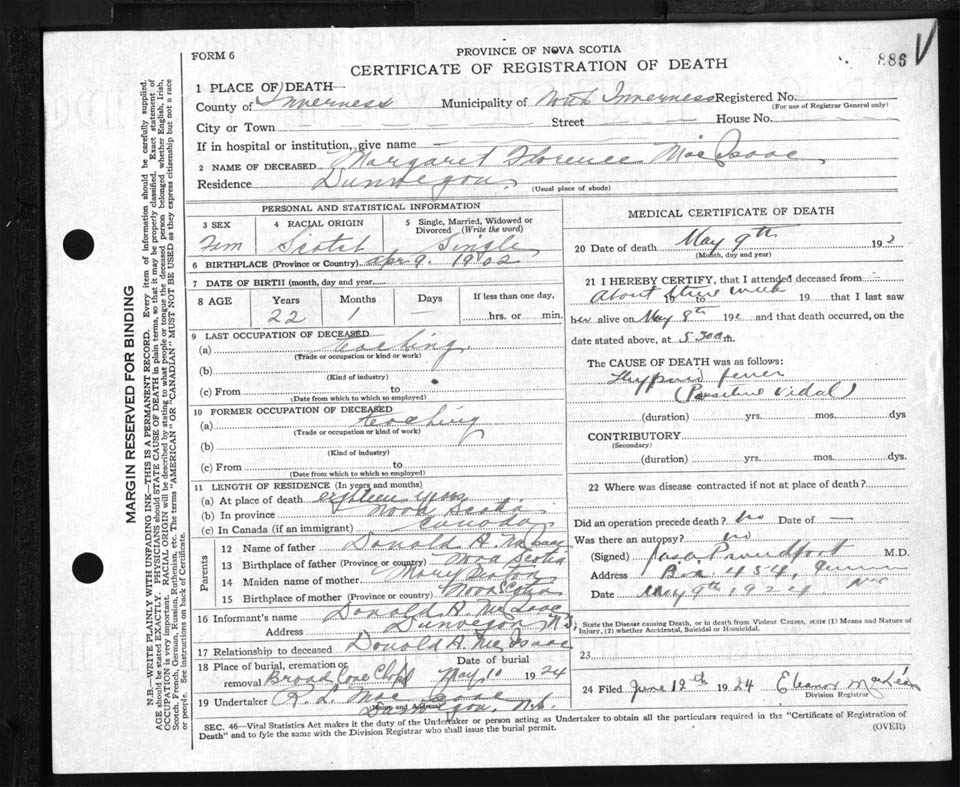 FORM 6
PROVINCE OF NOVA SCOTIA
886
CERTIFICATE OF REGISTRATION OF DEATH
1 PLACE OF DEATH—
County of Inverness Municipality of North Inverness Registered No.
(For use of Registrar General only)
City or Town Street House No.
If in hospital or institution, give name
2 NAME OF DECEASED Margaret Florence MacIsaac
Residence Dunvegan
(Usual place of abode)
PERSONAL AND STATISTICAL INFORMATION
3 SEX 4 RACIAL ORIGIN 5 Single, Married, Widowed or Divorced (Write the word)
Fem Scotch Single
6 BIRTHPLACE (Province or Country) Apr 9. 1902
7 DATE OF BIRTH (month, day and year)
8 AGE Years Months Days If less than one day,
22 1 — hrs. or min.
9 LAST OCCUPATION OF DECEASED
(a) teaching
(Trade or occupation or kind or work)
(b)
(Kind of industry)
(c) From to
(Date from which to which so employed)
10 FORMER OCCUPATION OF DECEASED
(a) teaching
(Trade or occupation or kind of work)
(b)
(Kind of industry)
(c) From to
(Date from which to which so employed)
11 LENGTH OF RESIDENCE (In years and months)
(a) At place of death eighteen years
(b) In province Nova Scotia
(c) In Canada (if an immigrant) Canada
Parents
12 Name of father Donald A. McIsaac
13 Birthplace of father (Province or country) Nova Scotia
14 Maiden name of mother Mary
15 Birthplace of mother (Province or country) Nova Scotia
16 Informant's name Donald A. McIsaac
Address Dunvegan N.S.
17 Relationship to deceased Donald A. McIsaac
18 Place of burial, cremation or removal Date of burial
Broad Cove Chpl May 10 1924
19 Undertaker R. L. MacIsaac
Dunvegan, N.S.
MEDICAL CERTIFICATE OF DEATH
20 Date of death May 9th 192
(Month, day and year)
21 I HEREBY CERTIFY, that I attended deceased from
About three weeks 19 to 19 that I last saw
her alive on May 8th 192 and that death occurred, on
date stated above, at 5.30 a m.
The CAUSE OF DEATH was as follows:
Typhoid fever
(Positive Vidal)
(duration) yrs. mos. dys
CONTRIBUTORY
(Secondary)
(duration) yrs. mos. dys.
22 Where was disease contracted if not at place of death?
Did an operation precede death? No Date of —
Was there an autopsy? no
(Signed) M.D.
Address Box 454,
Date May 9th 1924
State the Disease causing Death, or in death from Violent Causes, state (1) Means and Nature of Injury, (2) whether Accidental, Suicidal or Homicidal.
23
24 Filed June 12th 1924 Eleanor MacLean
Division Registrar
SEC. 46—Vital Statistics Act makes it the duty of the Undertaker or person acting as Undertaker to obtain all the particulars required in the "Certificate of Registration of
Death" and to fyle the same with the Division Registrar who shall issue the burial permit.
(OVER)
MARGIN RESERVED FOR BINDING
N.B.—WRITE PLAINLY WITH UNFADING INK—THIS IS A PERMANENT RECORD. Every item of information should be carefully supplied.
AGE should be stated EXACTLY. PHYSICIANS should STATE CAUSE OF DEATH in plain terms, so that it may be properly classified. Exact statement of
OCCUPATION is very important. RACIAL ORIGIN will be described by stating to what people or tongue the deceased person belonged whether English, Irish,
Scotch, French, German, Russian, Ruthenian, etc. The terms "AMERICAN" OR "CANADIAN" MUST NOT BE USED as they express citizenship but not a race
or people. See instructions on back of Certificate.